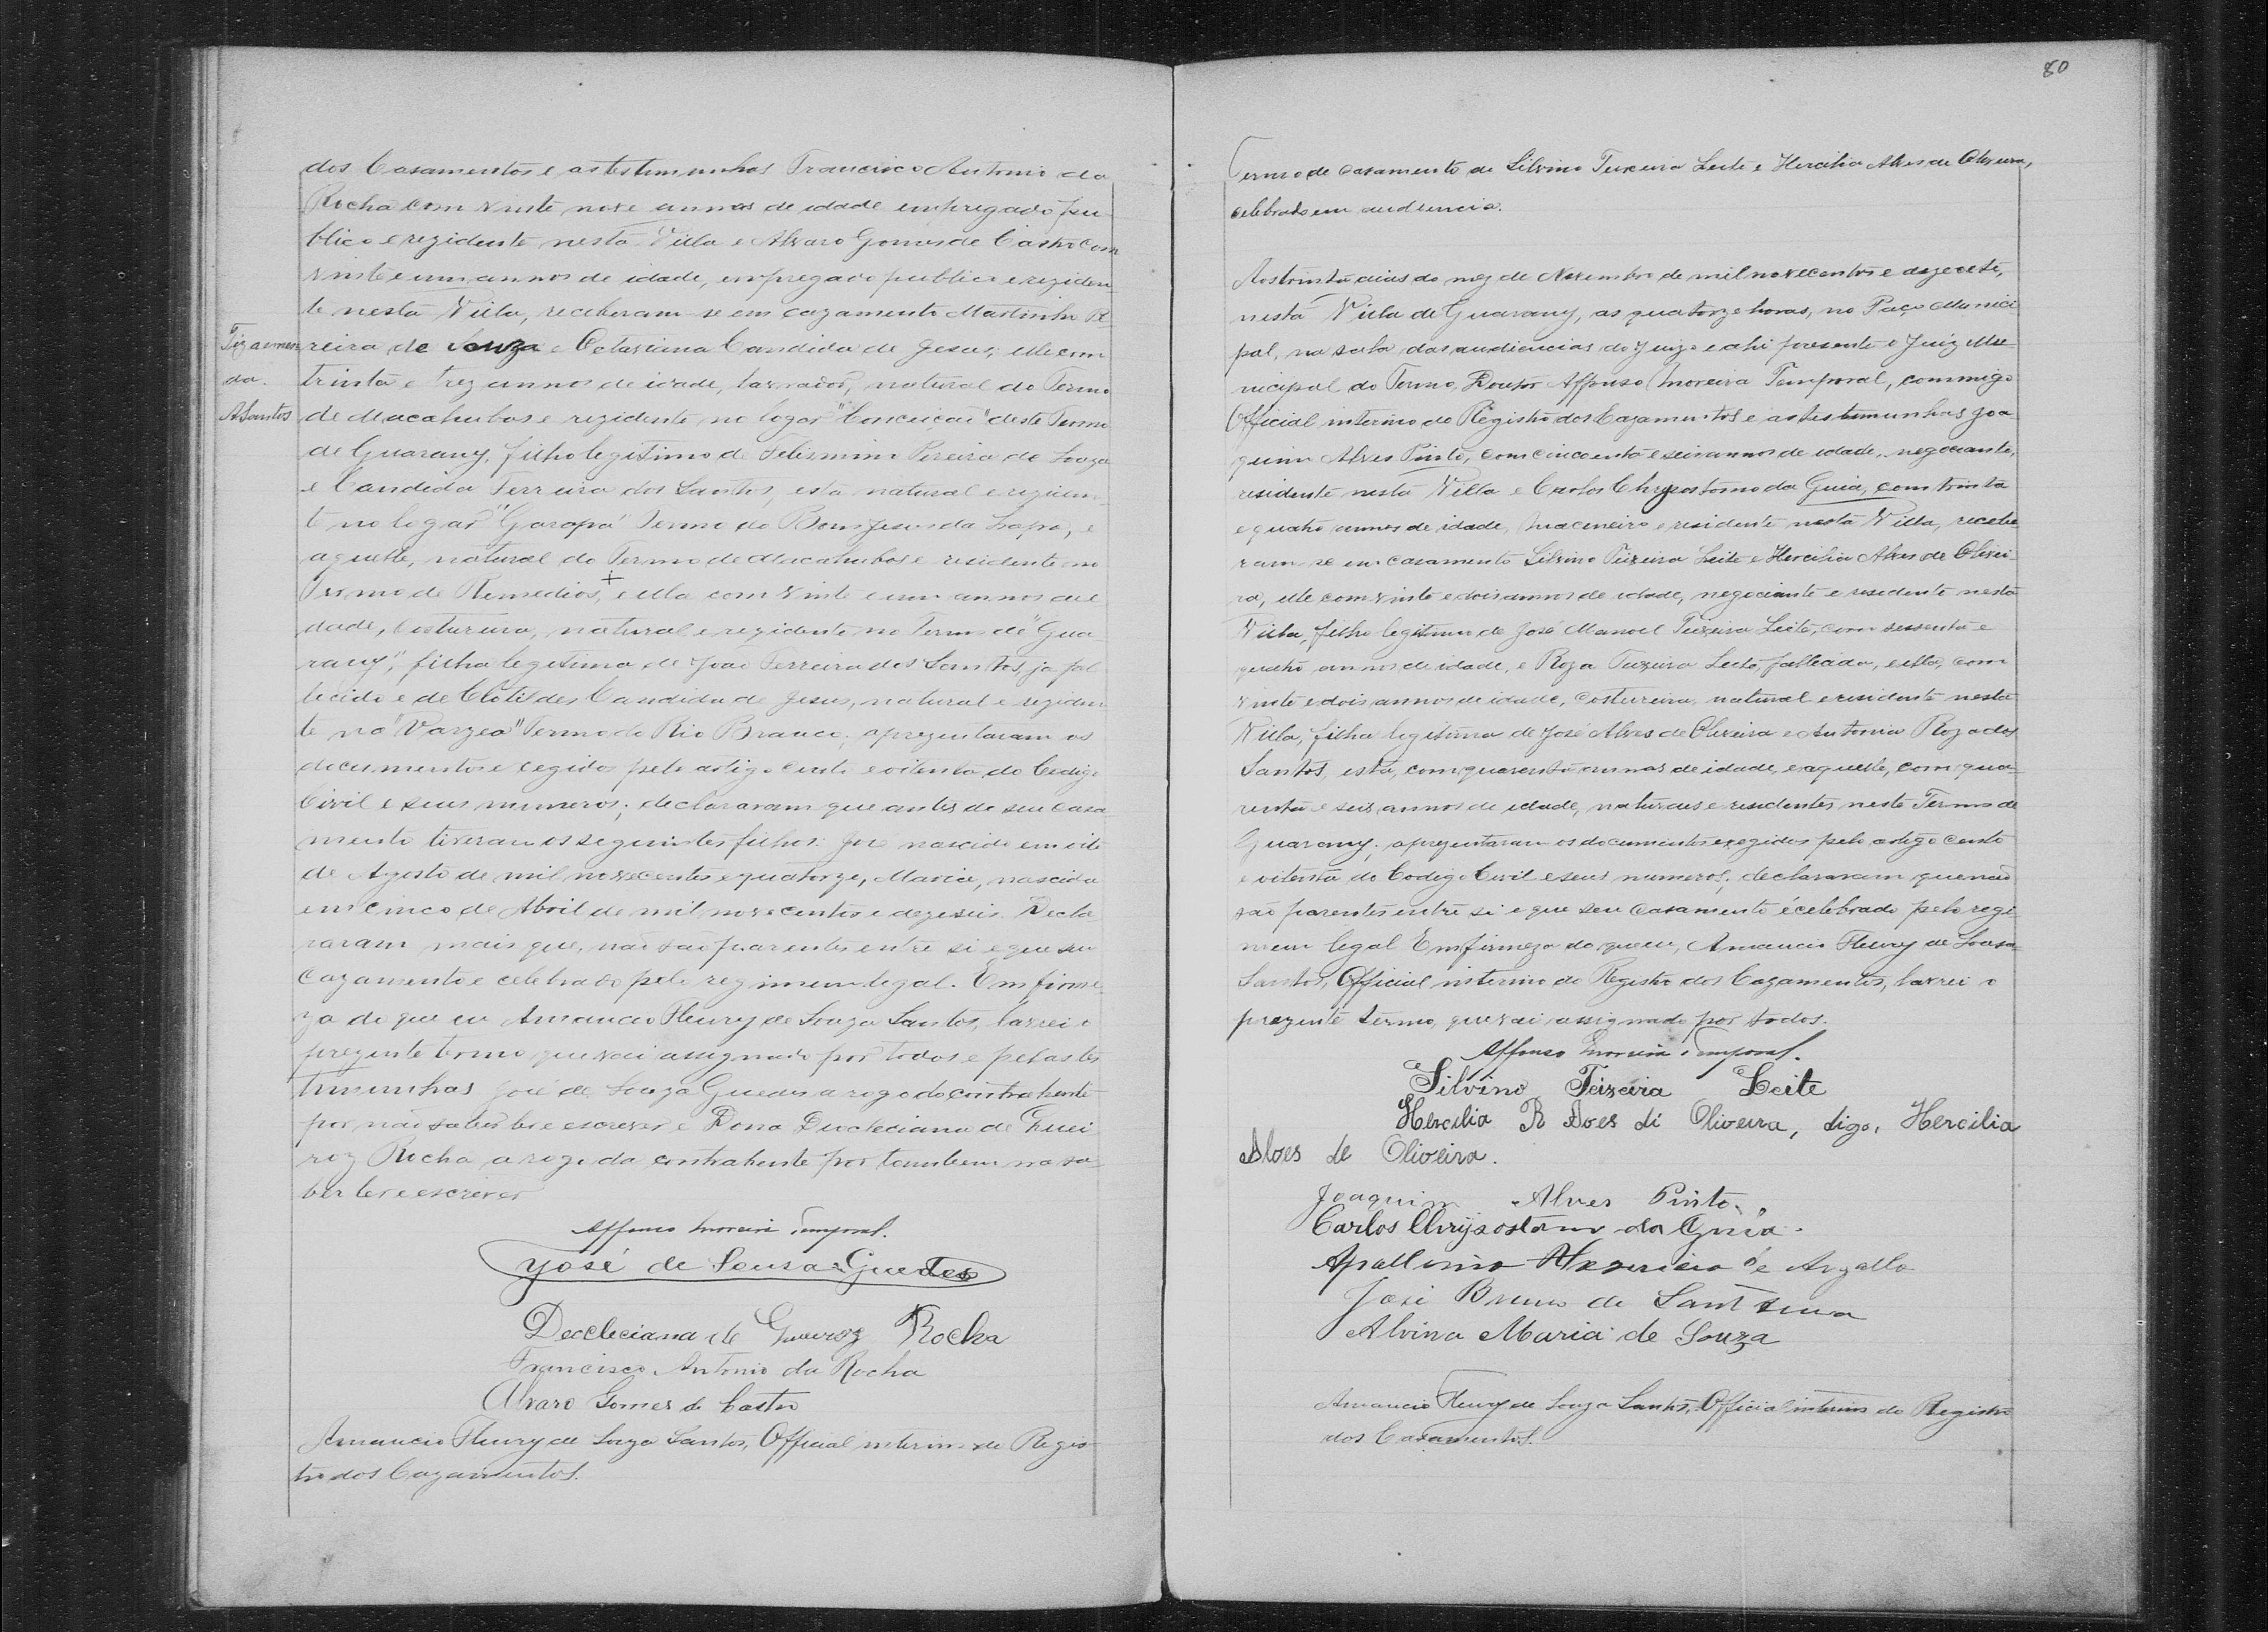 dos Casamentos e as testimunhas Francisco Antonio da
Rocha com vinte nove annos de idade empregado pu
blico e rezidente nesta Villa e Alvaro Gomes de Castro com
vinte e um annos de idade, empregado publico e reziden
te nesta Villa, receberam-se em cazamento Martinho Pe
reira de Souza e Octaviana Candida de Jesus; elle com
trinta e trez annos de idade, lavrador, natural do Termo
de Macahubas e rezidente no logar "Conceição" deste Termo
de Guarany, filho legitimo de Felismino Pereira de Souza
e Candida Ferreira dos Santos, esta natural e reziden
te no logar "Garapa" Termo do Bom Jesus da Lapa, e
aquelle, natural do Termo de Macahubas e residente no
Termo de Remedios, e ella com vinte e um annos de
dade, costureira, natural e rezidente no Termo de "Gua
rany", filha legitima de João Ferreira dos Santos, ja fal
lecido e de Clotildes Candida de Jesus, natural e reziden
te na "Varzea" Termo do Rio Branco; aprezentaram os
documentos exegidos pelo artigo cento e oitenta do Codigo
Civil e seus numeros; declararam que antes de seu casa
mento tiveram os seguintes filhos: José nascido em oito
de Agosto de mil novecentos e quatorze, Maria, nascida
em cinco de Abril de mil novecentos e dezeseis. Decla
raram mais que, não são parentes entre si e que seu
cazamento e celebrado pelo regimem legal. Em firme
za do que eu Amancio Fleury de Souza Santos, lavrei o
prezente termo que vai assignado por todos e pelas tes
timunhas José de Souza Guedes a rogo do contrahente
por não saber ler e escrever e Dona Diocleciana de Quei
roz Rocha a rogo da contrahente por tambem não sa
ber ler e escrever
Affonso Moreira Temporal.
José de Sousa Guedes
Deocleciana de Queiroz Rocha
Francisco Antonio da Rocha
Alvaro Gomes de Castro
Amancio Fleury de Souza Santos, Official interino do Regis
tro dos Cazamentos.
Fiz a emen
da.
ASantos
80
Termo de casamento de Silvino Teixeira Leite e Hercilia Alves de Oliveira,
celebrado em audiencia.
Aos trinta dias do mez de Novembro de mil novecentos e dezecete,
nesta Villa de Guarany, as quatorze horas, no Paço Munici
pal, na sala das audiencias do Juizo e ahi presente o Juiz Mu
nicipal do Termo, Doutor Affonso Moreira Temporal, commigo
Official interino do Registro dos Cazamentos e as testemunhas Joa
quim Alves Pinto, com cincoenta e seis annos de idade, negociante,
residente nesta Villa e Carlos Chrysostomo da Guia, com trinta
e quatro annos de idade, Marceneiro e residente nesta Villa, recebe
ram-se em casamento Silvino Teixeira Leite e Hercilia Alves de Olivei
ra, elle com vinte e dois annos de idade, negociante e residente nesta
Villa, filho legitimo de José Manoel Teixeira Leite, com sessenta e
quatro annos de idade, e Roza Teixeira Leite, fallecida, e ella, com
vinte e dois annos de idade, costureira, natural e residente nesta
Villa, filha legitima de José Alves de Oliveira e Antonia Roza dos
Santos, esta, com quarenta annos de idade, e aquelle, com qua
renta e seis annos de idade, naturaes e residentes neste Termo de
Guarany; aprezentaram os documentos exegidos pelo artigo cento
e oitenta do Codigo Civil e seus numeros; declararam que não
são parentes entre si e que seu casamento é celebrado pelo regi
mem legal Em firmeza do que eu, Amancio Fleury de Sousa
Santos, Official interino do Registro dos Cazamentos, lavrei o
prezente termo, que vai assignado por todos.
Affonso Moreira Temporal.
Silvino Teixeira Leite
Hercilia R Alves di Oliveira, digo, Hercilia
Alves de Oliveira.
Joaquim Alves Pinto.
Carlos Chrijsostomo da Guia.
de Argollo
José Bruno de Sant
Alvina Maria de Souza
Amancio Fleury de Souza Santos, Official interino do Registro
dos Casamentos.